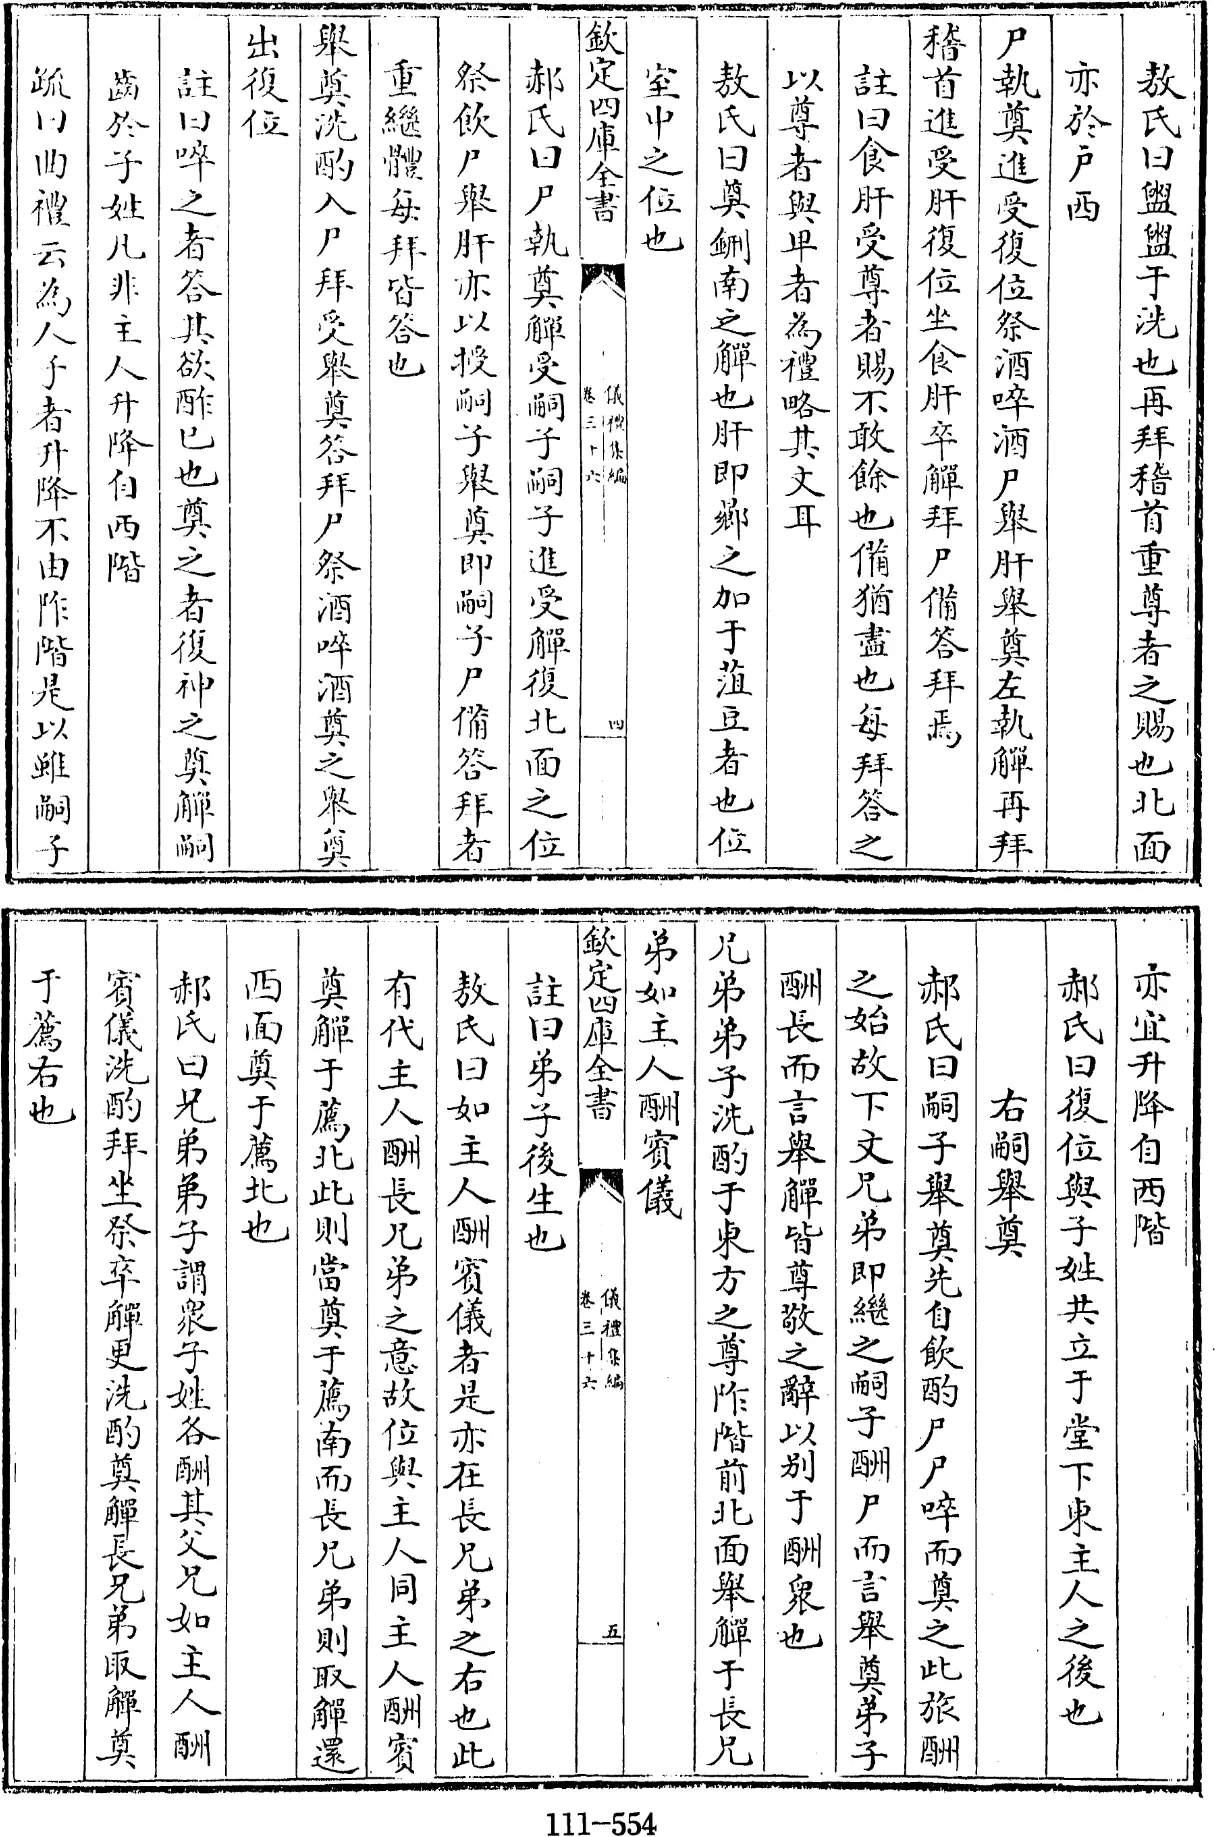 敖氏曰盥盥于洗也再拜稽首重尊者之賜也北面
亦於户西
尸執奠進受復位祭酒啐酒尸舉肝舉奠左執觶再拜
稽首進受肝復位坐食肝卒觶拜尸備答拜焉
註曰食肝受尊者賜不敢餘也備猶盡也每拜答之
以尊者與卑者為禮略其文耳
敖氏曰奠鉶南之觶也肝即鄉之加于菹豆者也位
室中之位也
欽定四庫全書
儀禮集編
卷三十六
四
郝氏曰尸執奠觶受嗣子嗣子進受觶復北面之位
祭飲尸舉肝亦以授嗣子舉奠即嗣子尸備答拜者
重繼體每拜皆答也
舉奠洗酌入尸拜受舉奠答拜尸祭酒啐酒奠之舉奠
出復位
註曰啐之者答其欲酢已也奠之者復神之奠觶嗣
齒於子姓凡非主人升降自西階
疏曰曲禮云為人子者升降不由阼階是以雖嗣子
亦宜升降自西階
郝氏曰復位與子姓共立于堂下東主人之後也
右嗣舉奠
郝氏曰嗣子舉奠先自飲酌尸尸啐而奠之此旅酬
之始故下文兄弟即繼之嗣子酬尸而言舉奠弟子
酬長而言舉觶皆尊敬之辭以别于酬衆也
兄弟弟子洗酌于東方之尊阼階前北面舉觶于長兄
弟如主人酬賓儀
欽定四庫全書
儀禮集編
卷三十六
五
註曰弟子後生也
敖氏曰如主人酬賓儀者是亦在長兄弟之右也此
有代主人酬長兄弟之意故位與主人同主人酬賓
奠觶于薦北此則當奠于薦南而長兄弟則取觶還
西面奠于薦北也
郝氏曰兄弟弟子謂衆子姓各酬其父兄如主人酬
賓儀洗酌拜坐祭卒觶更洗酌奠觶長兄弟取觶奠
于薦右也
111-554